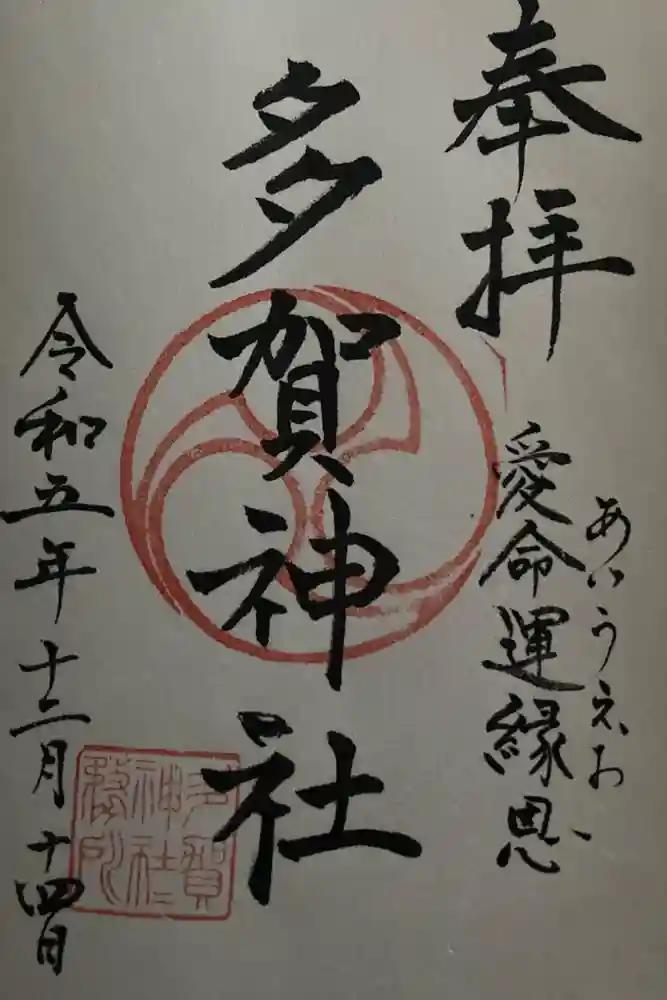 奉拝
愛命運縁恩
あいうえお
多賀神社
令和五年十二月十四日
多賀
神社
務所